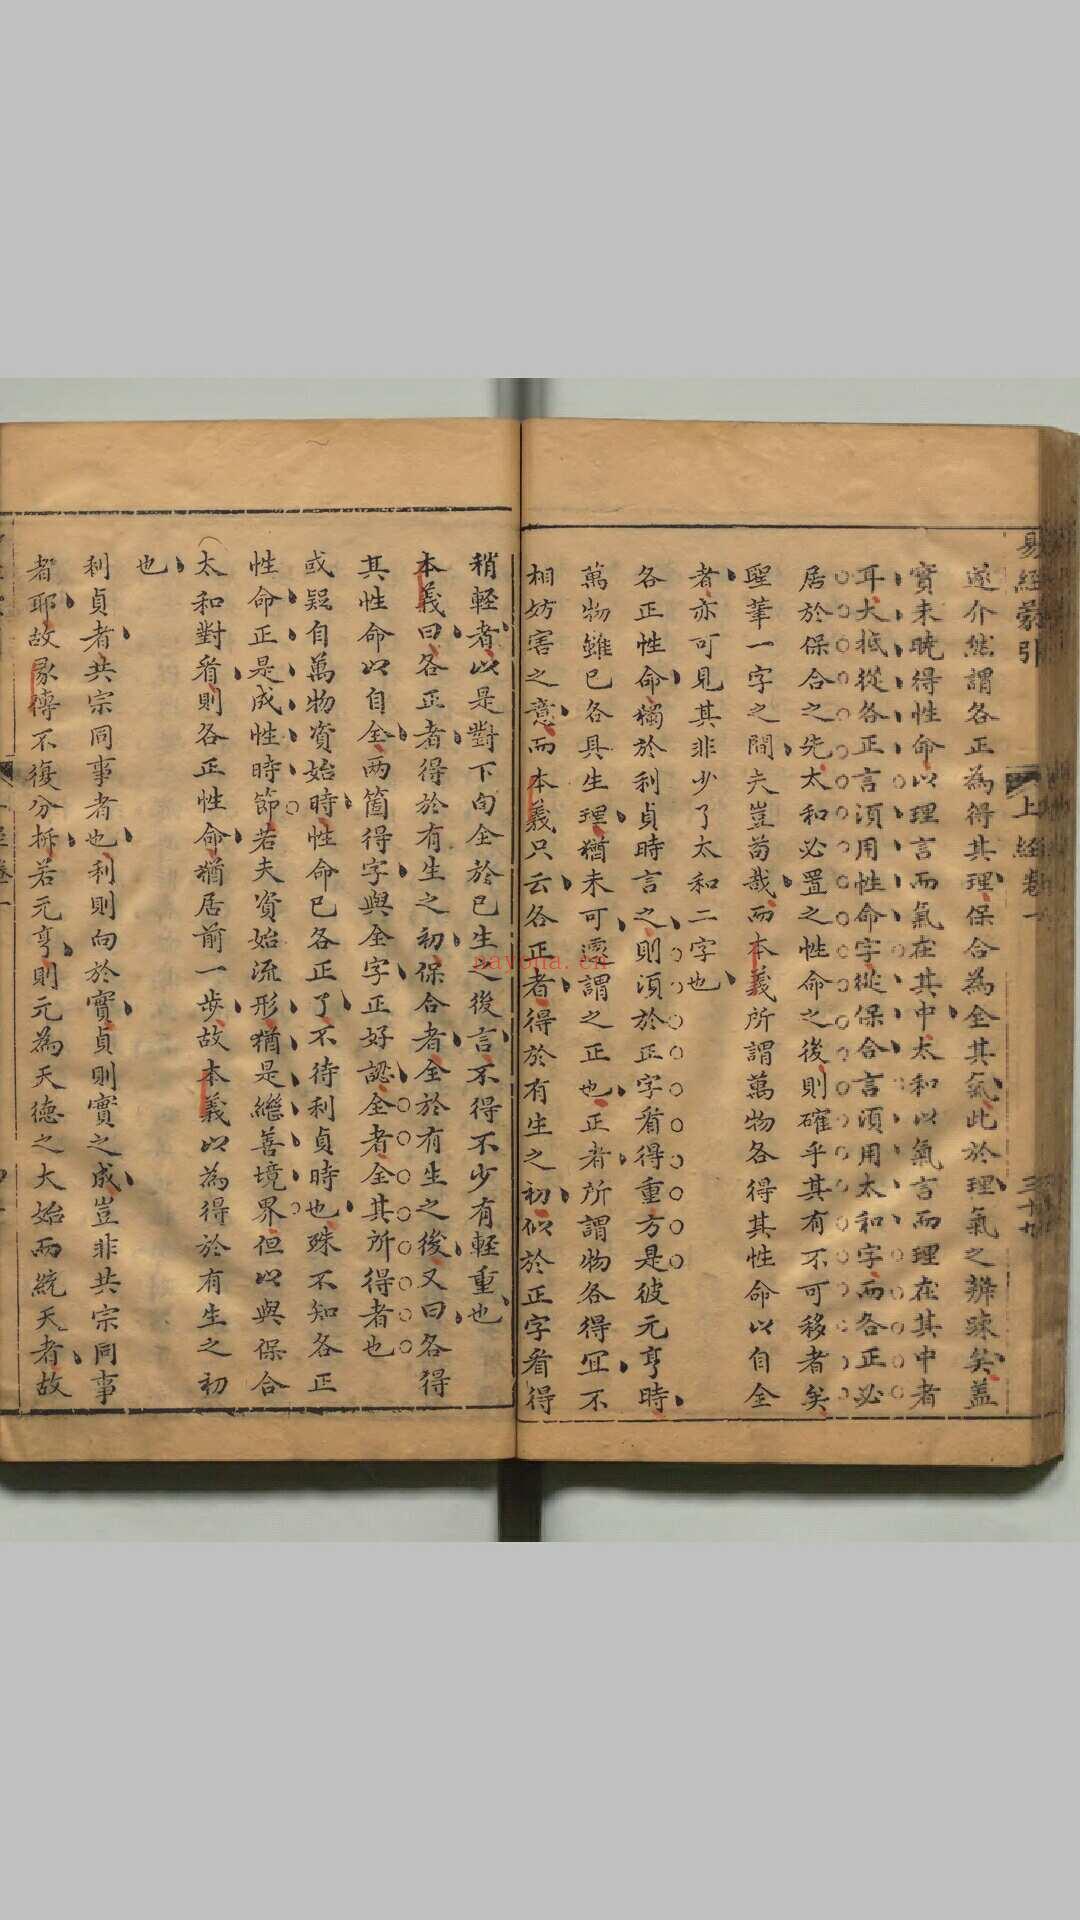 易經蒙引 上經卷一 三十九
遂介然謂各正為得其理保合為全其氣此於理氣之辨踈矣盖
實未曉得性命以理言而氣在其中太和以氣言而理在其中者
耳大抵從各正言湏用性命字從保合言湏用太和字而各正必
居於保合之先太和必置之性命之後則確乎其有不可移者矣
聖筆一字之間夫豈苟哉而本義所謂萬物各得其性命以自全
者亦可見其非少了太和二字也
各正性命獨於利貞時言之則湏於正字㸔得重方是彼元亨時
萬物雖已各具生理猶未可遽謂之正也正者所謂物各得冝不
相妨害之意而本義只云各正者得於有生之初似於正字㸔得
稍輕者以是對下句全於已生之後言不得不少有輕重也
本義曰各正者得於有生之初保合者全於有生之後又曰各得
其性命以自全两箇得字與全字正好認全者全其所得者也
或疑自萬物資始時性命已各正了不待利貞時也殊不知各正
性命正是成性時節若夫資始流形猶是繼善境界但以與保合
太和對㸔則各正性命猶居前一步故本義以為得於有生之初
也
利貞者共宗同事者也利則向於實貞則實之成豈非共宗同事
者耶故彖傳不復分拆若元亨則元為天德之大始而統天者故
nayona.cn